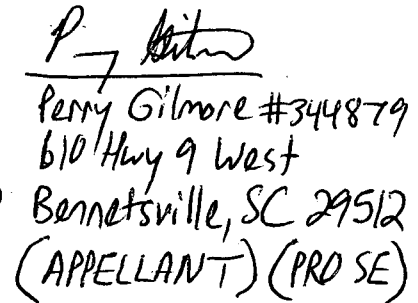 Perry Gilmore #344879
610 Hwy 9 West
Bennetsville, SC 29512
(APPELLANT) (PRO SE)